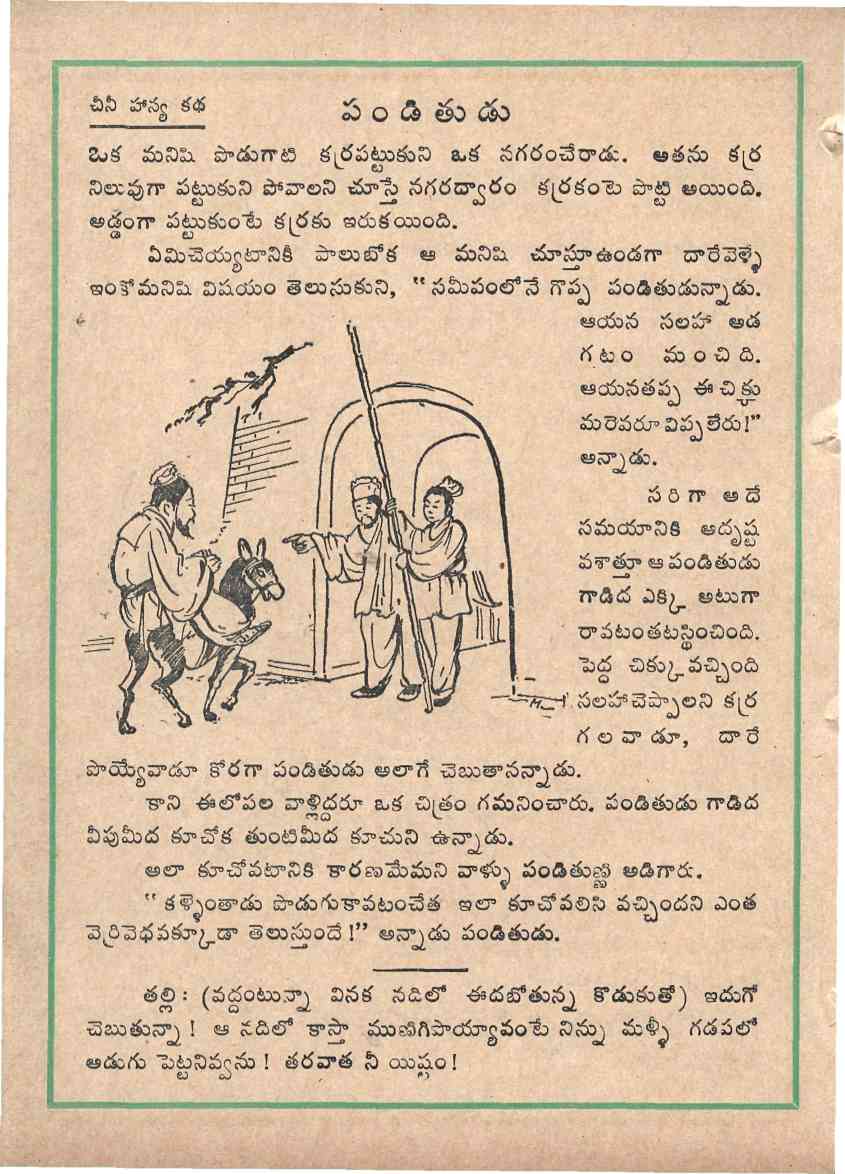 చీనీ హాస్య కథ
పండితుడు
ఒక మనిషి పొడుగాటి కర్రపట్టుకుని ఒక నగరంచేరాడు. అతను కర్ర
నిలువుగా పట్టుకుని పోవాలని చూస్తే నగరద్వారం కర్రకంటె పొట్టి అయింది.
అడ్డంగా పట్టుకుంటే కర్రకు ఇరుకయింది.
ఏమిచెయ్యటానికీ పాలుబోక ఆ మనిషి చూస్తూఉండగా దారేవెళ్ళే
ఇంకోమనిషి విషయం తెలుసుకుని, “సమీపంలోనే గొప్ప పండితుడున్నాడు.
ఆయన సలహా అడ
గటం మంచిది.
ఆయనతప్ప ఈ చిక్కు
మరెవరూ విప్పలేరు!”
అన్నాడు.
సరిగా అదే
సమయానికి అదృష్ట
వశాత్తూ ఆ పండితుడు
గాడిద ఎక్కి అటుగా
రావటంతటస్థించింది.
పెద్ద చిక్కువచ్చింది
సలహాచెప్పాలని కర్ర
గలవాడూ, దారే
పొయ్యేవాడూ కోరగా పండితుడు అలాగే చెబుతానన్నాడు.
కాని ఈలోపల వాళ్లిద్దరూ ఒక చిత్రం గమనించారు. పండితుడు గాడిద
వీపుమీద కూచోక తుంటిమీద కూచుని ఉన్నాడు.
అలా కూచోవటానికి కారణమేమని వాళ్ళు పండితుణ్ణి అడిగారు.
“కళ్ళెంతాడు పొడుగుకావటంచేత ఇలా కూచోవలిసి వచ్చిందని ఎంత
వెర్రివెధవక్కూడా తెలుస్తుందే!” అన్నాడు పండితుడు.
తల్లి: (వద్దంటున్నా వినక నదిలో ఈదబోతున్న కొడుకుతో) ఇదుగో
చెబుతున్నా! ఆ నదిలో కాస్తా మునిగిపొయ్యావంటే నిన్ను మళ్ళీ గడపలో
అడుగు పెట్టనివ్వను! తరవాత నీ యిష్టం!